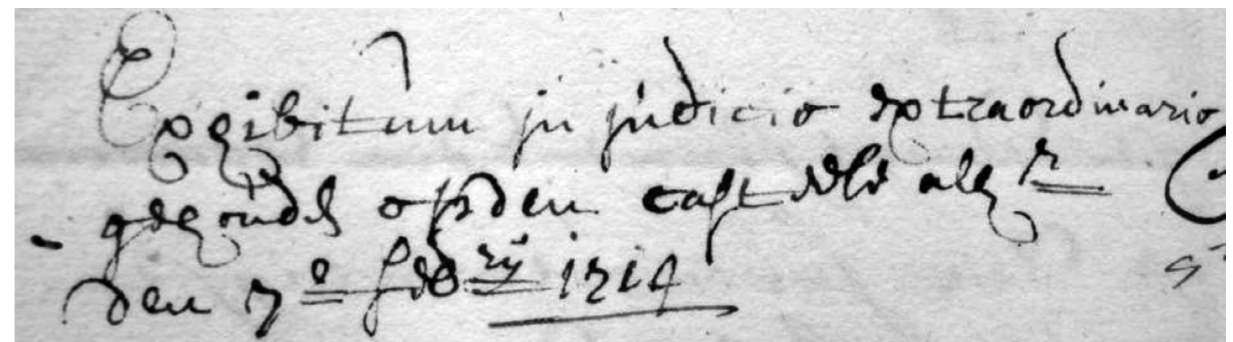 Exhibitum in judicio extraordinario
gehouden op den casteele alhr
den 7e feb ry 1714